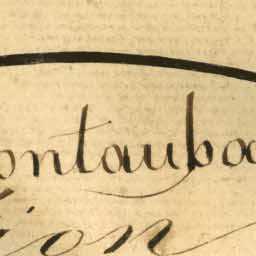 ontauba
ion